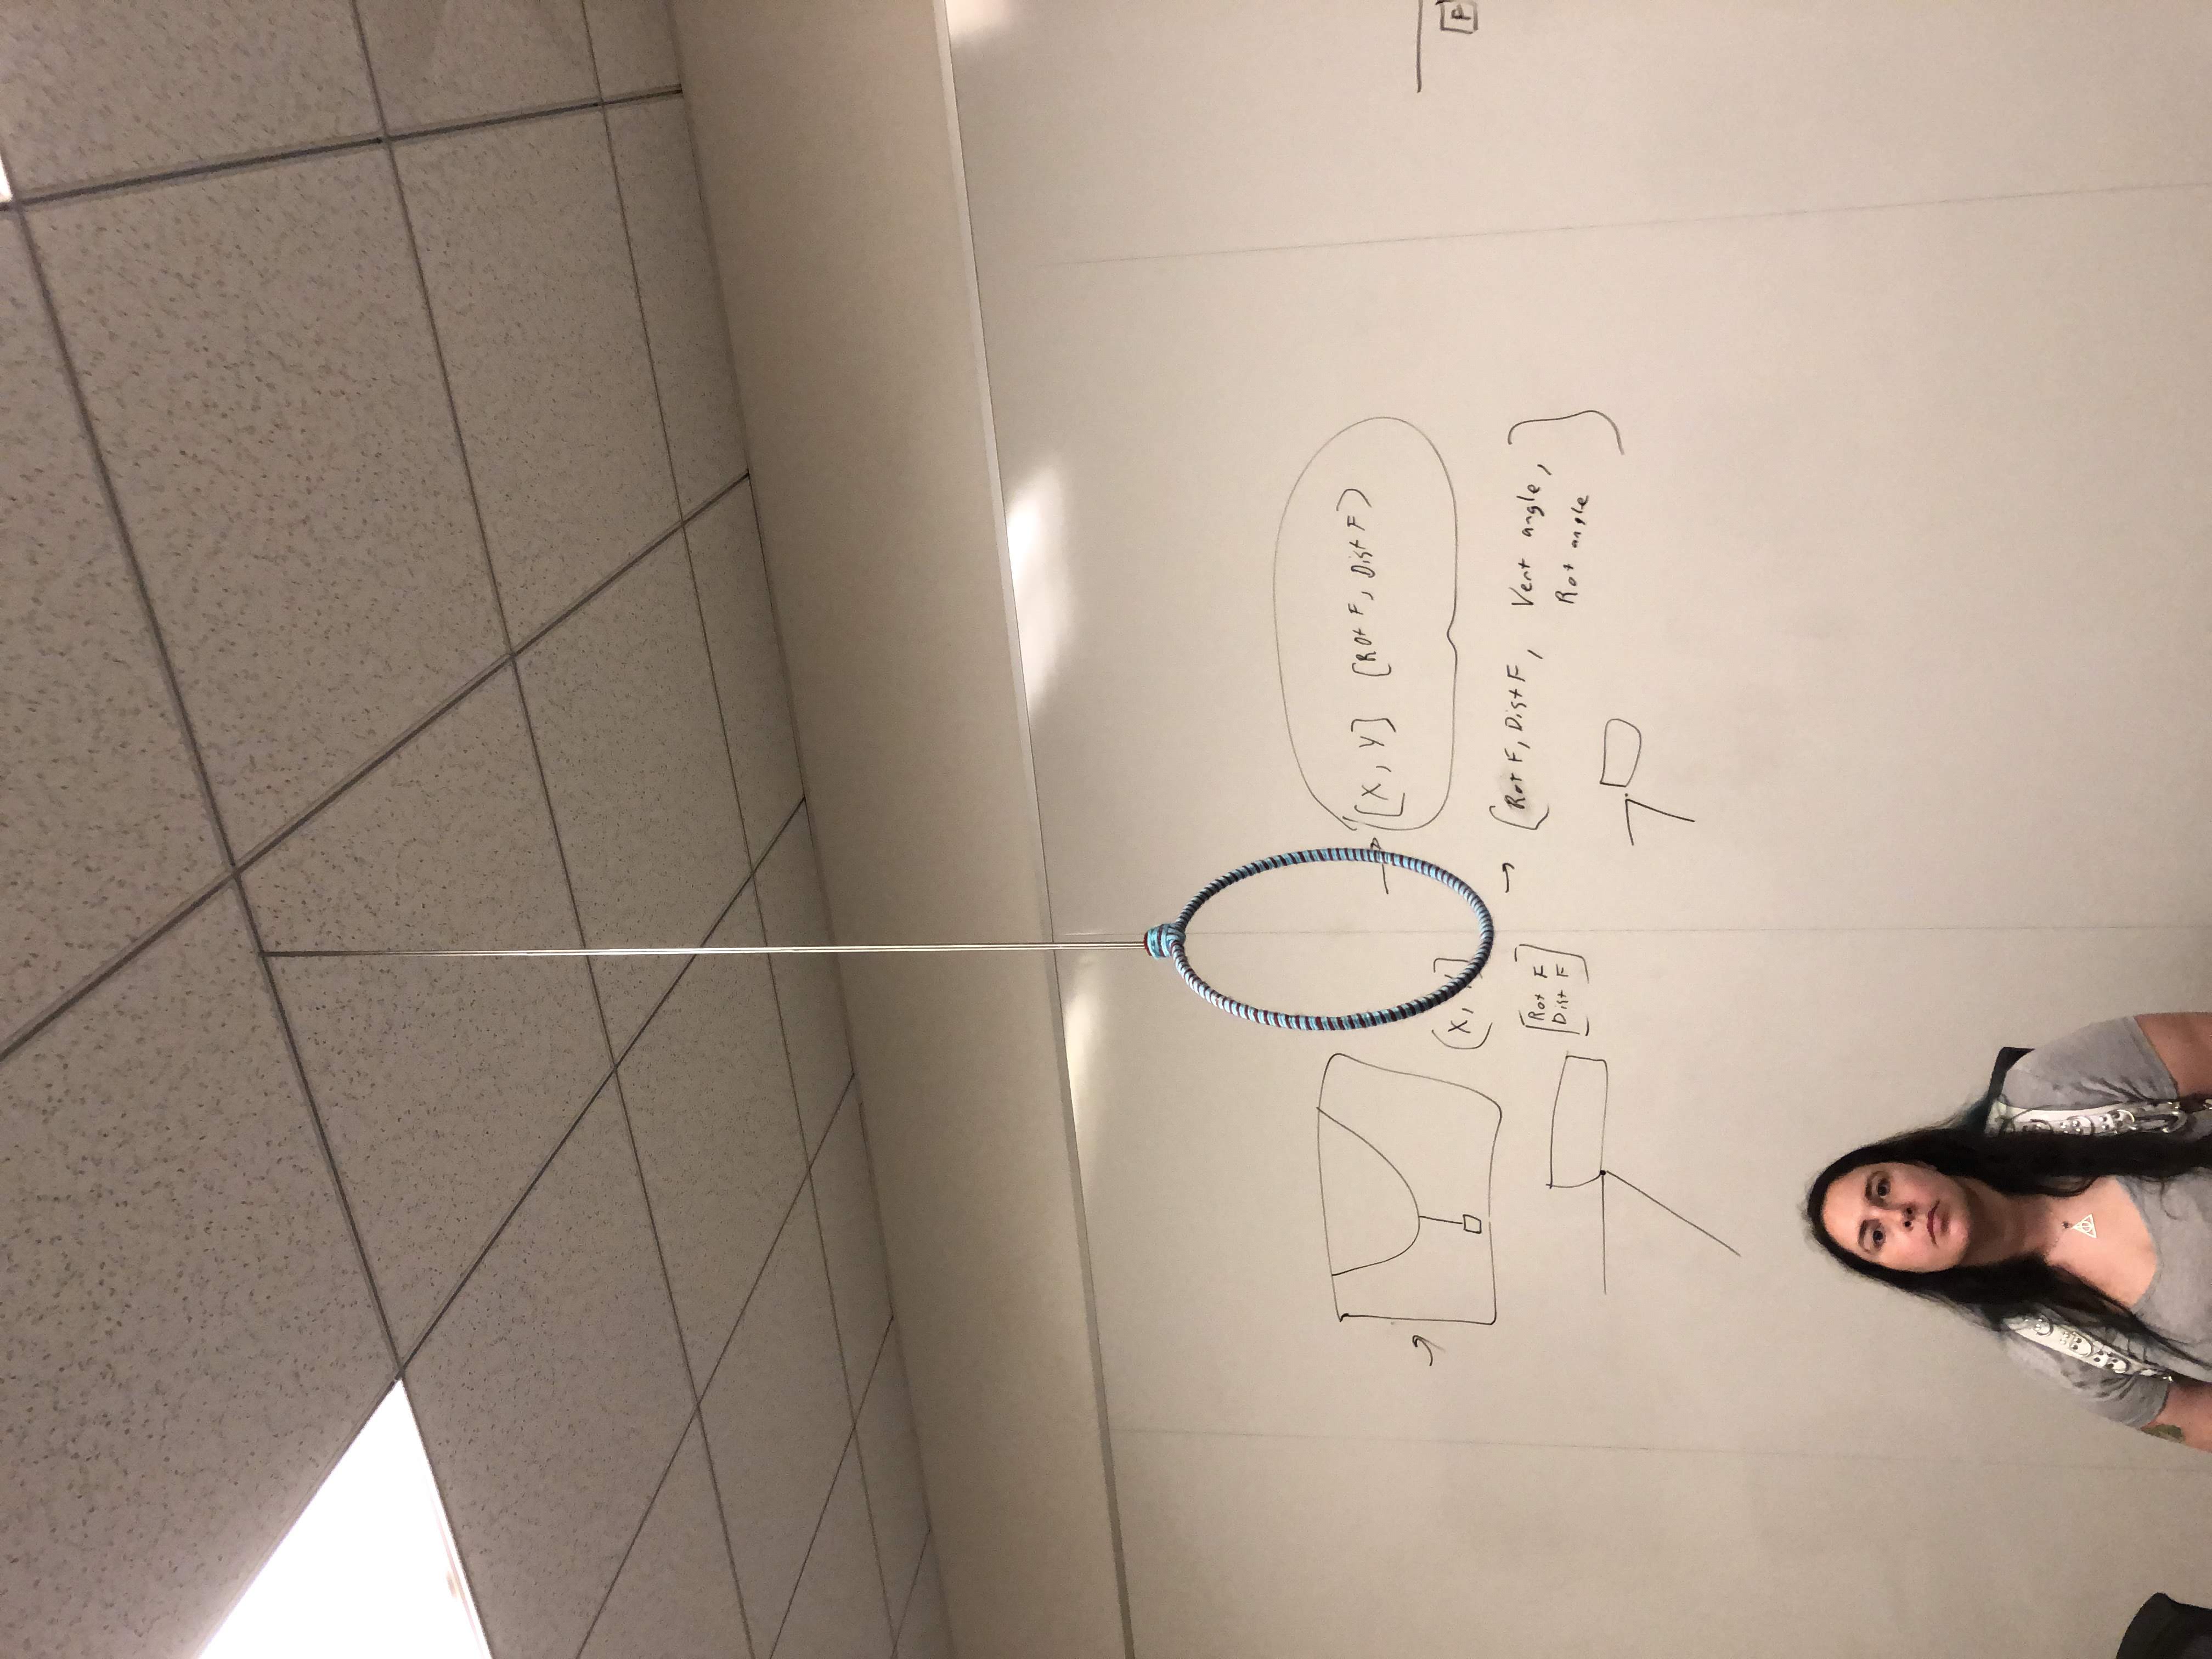 [X, Y] [Rot F, Dist F]
(X,
[Rot F
Dist F]
[Rot F, Dist F, Vert angle,
Rot angle]
F